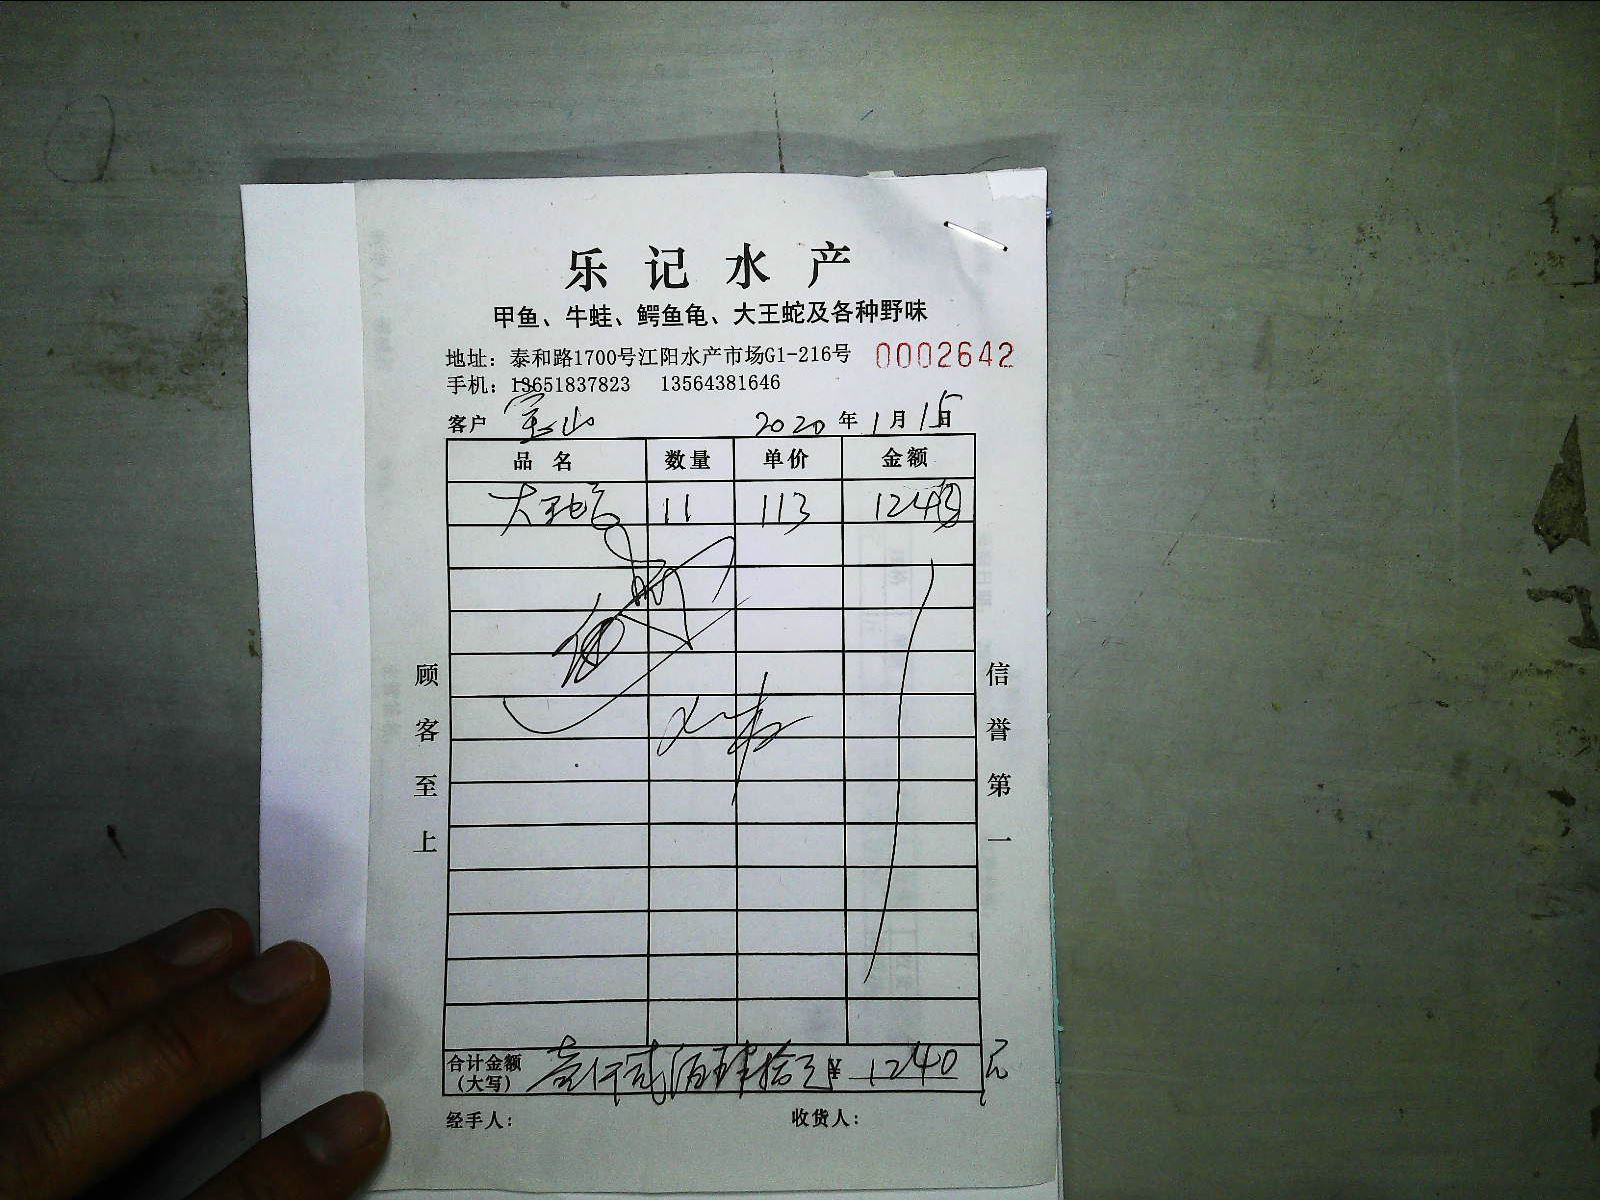 乐记水产
甲鱼、牛蛙、鳄鱼龟、大王蛇及各种野味
地址：泰和路1700号江阳水产市场G1-216号 0002642
手机：13651837823 13564381646
客户 宝山 2020年1月15日
品名 数量 单价 金额
大 11 113 1243
顾客至上
信誉第一
合计金额（大写） 壹仟贰佰肆拾元 ¥1240元
经手人： 收货人：